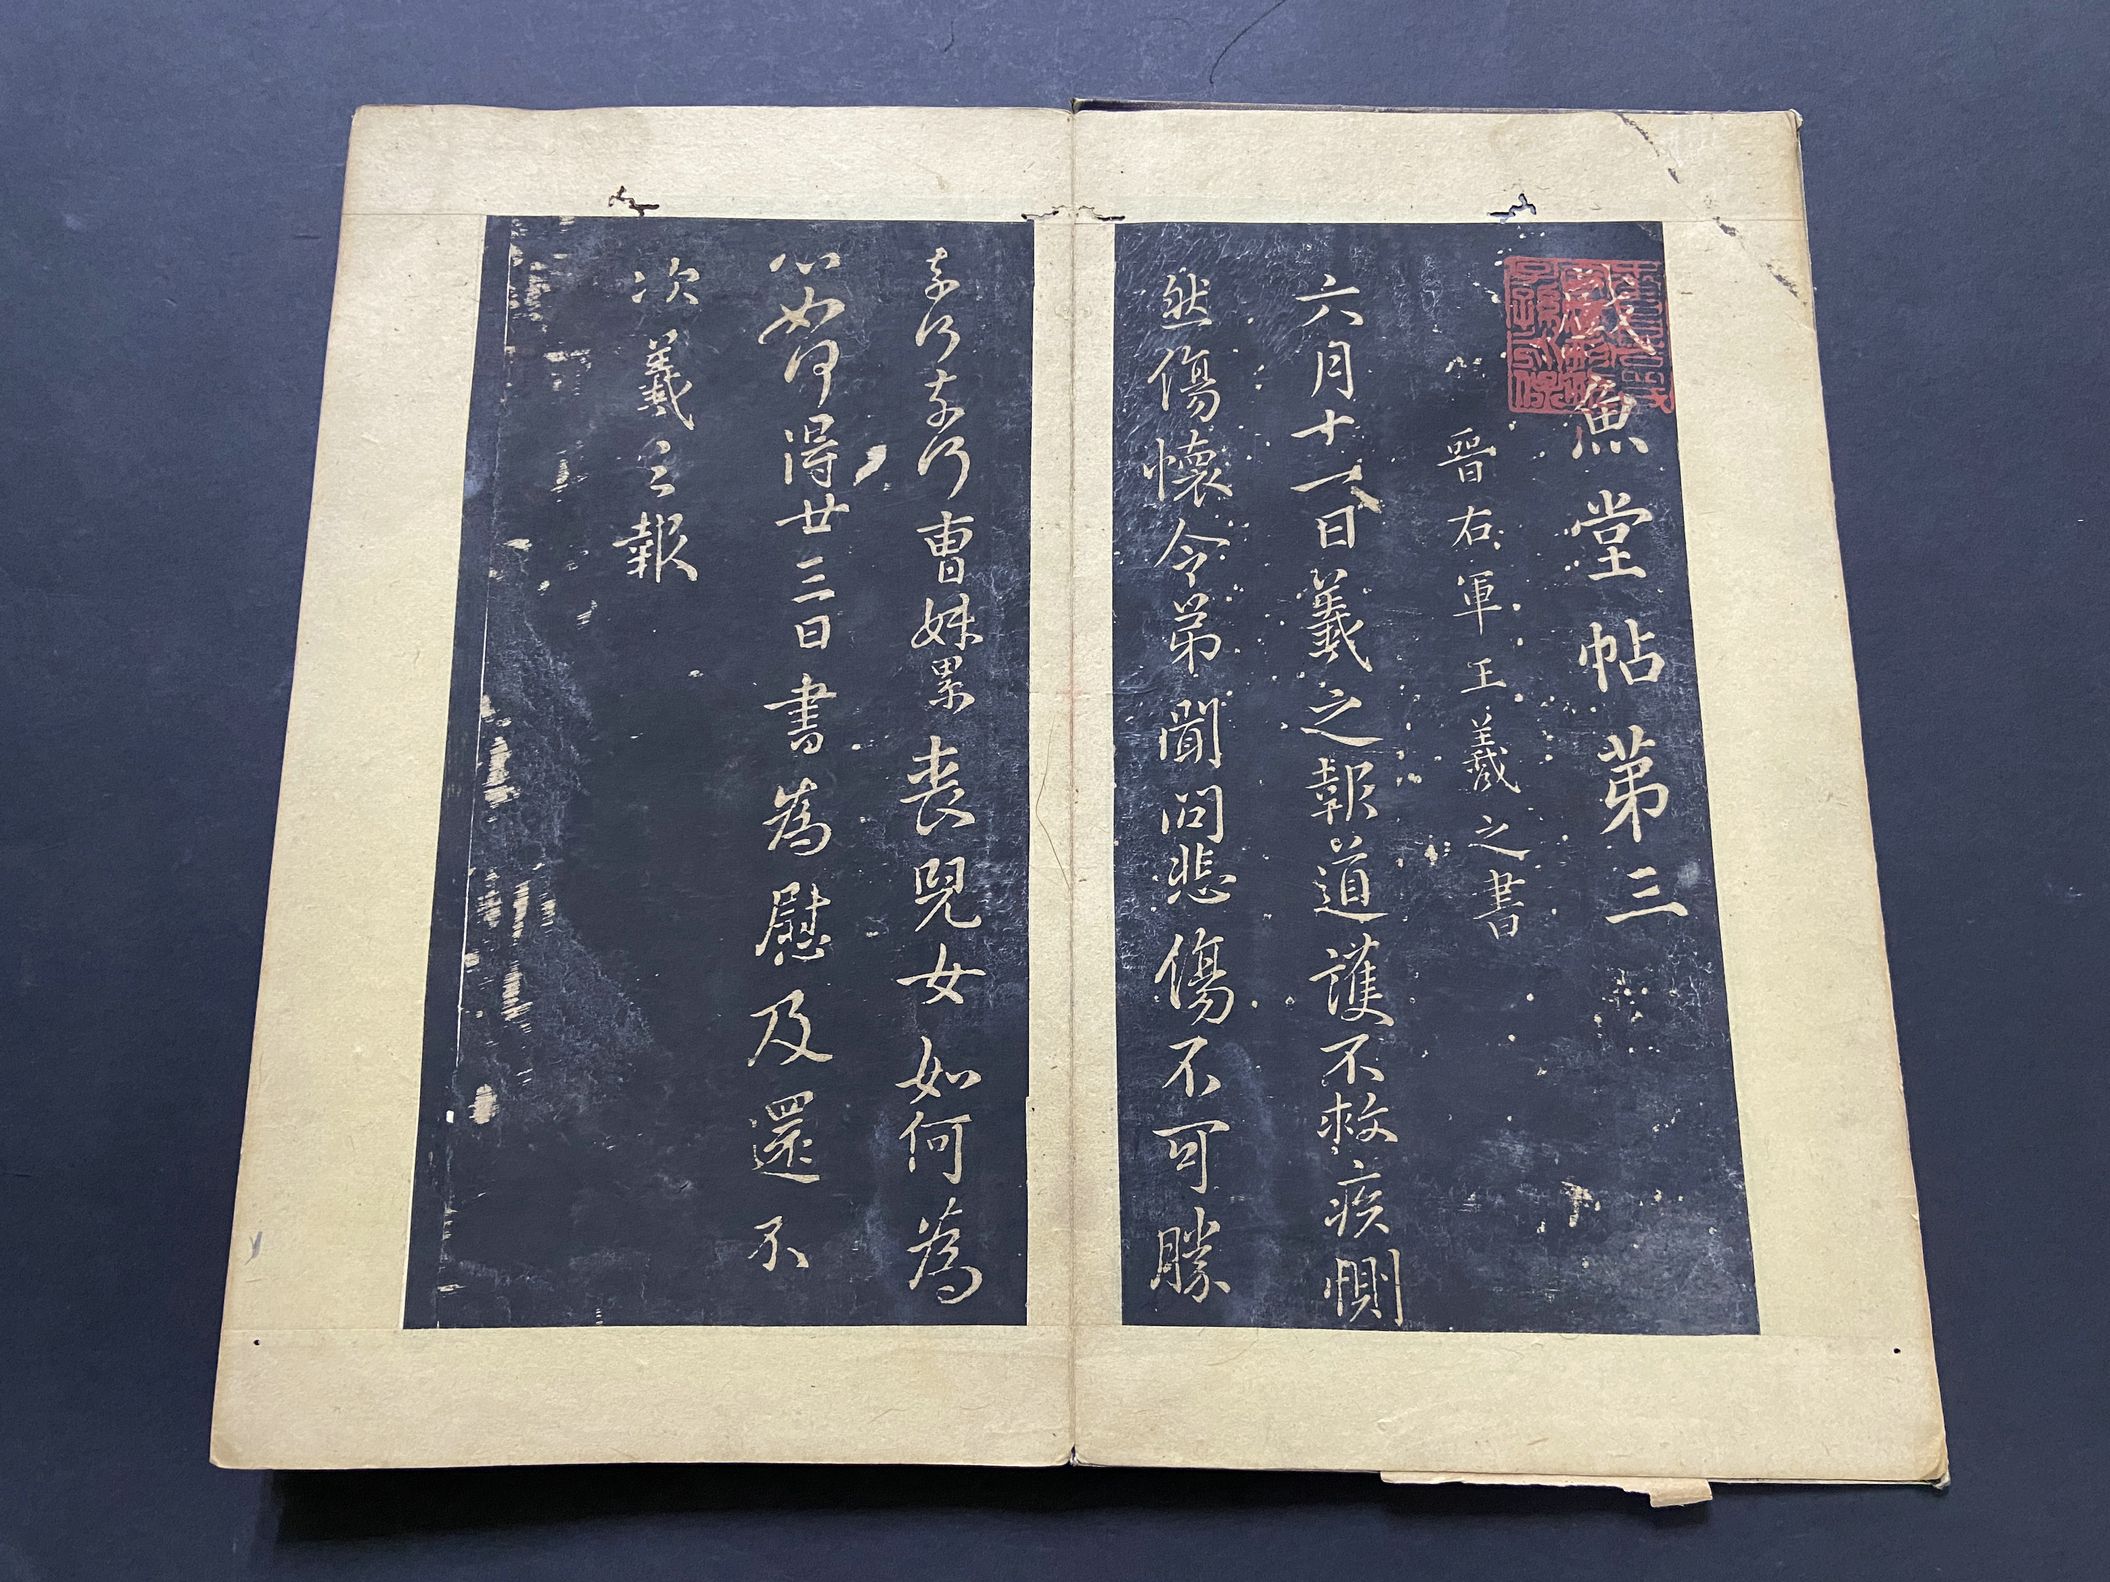 戲魚堂帖第三
晉右軍王羲之書
六月十一日羲之報道護不救疾惻
然傷懷令弟聞問悲傷不可勝
奈何奈何曹妹累喪兒女如何為
心如何得廿三日書為慰及還不
次羲之報
子孫永保